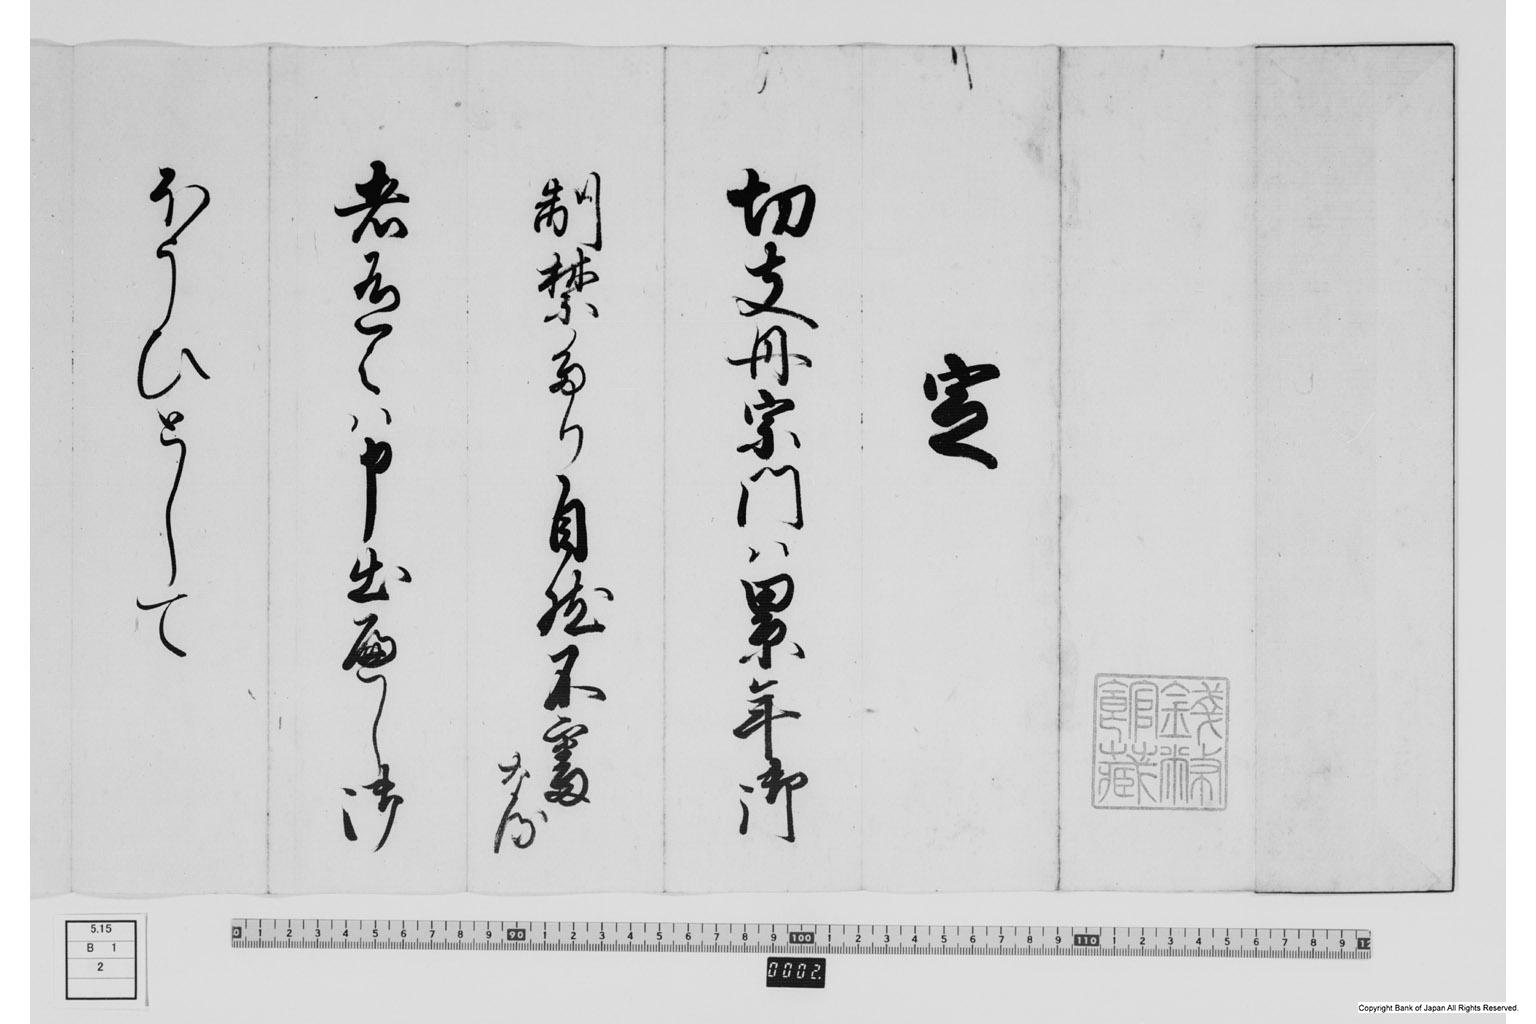 定
切支丹宗門ハ累年御
制禁たり自然不審
なる
者有之ハ申出へし御
ほうひとして
銭幣
館藏
5.15
B 1
2
0 1 2 3 4 5 6 7 8 9 90 1 2 3 4 5 6 7 8 9 100 1 2 3 4 5 6 7 8 9 110 1 2 3 4 5 6 7 8 9 12
0002.
Copyright Bank of Japan All Rights Reserved.